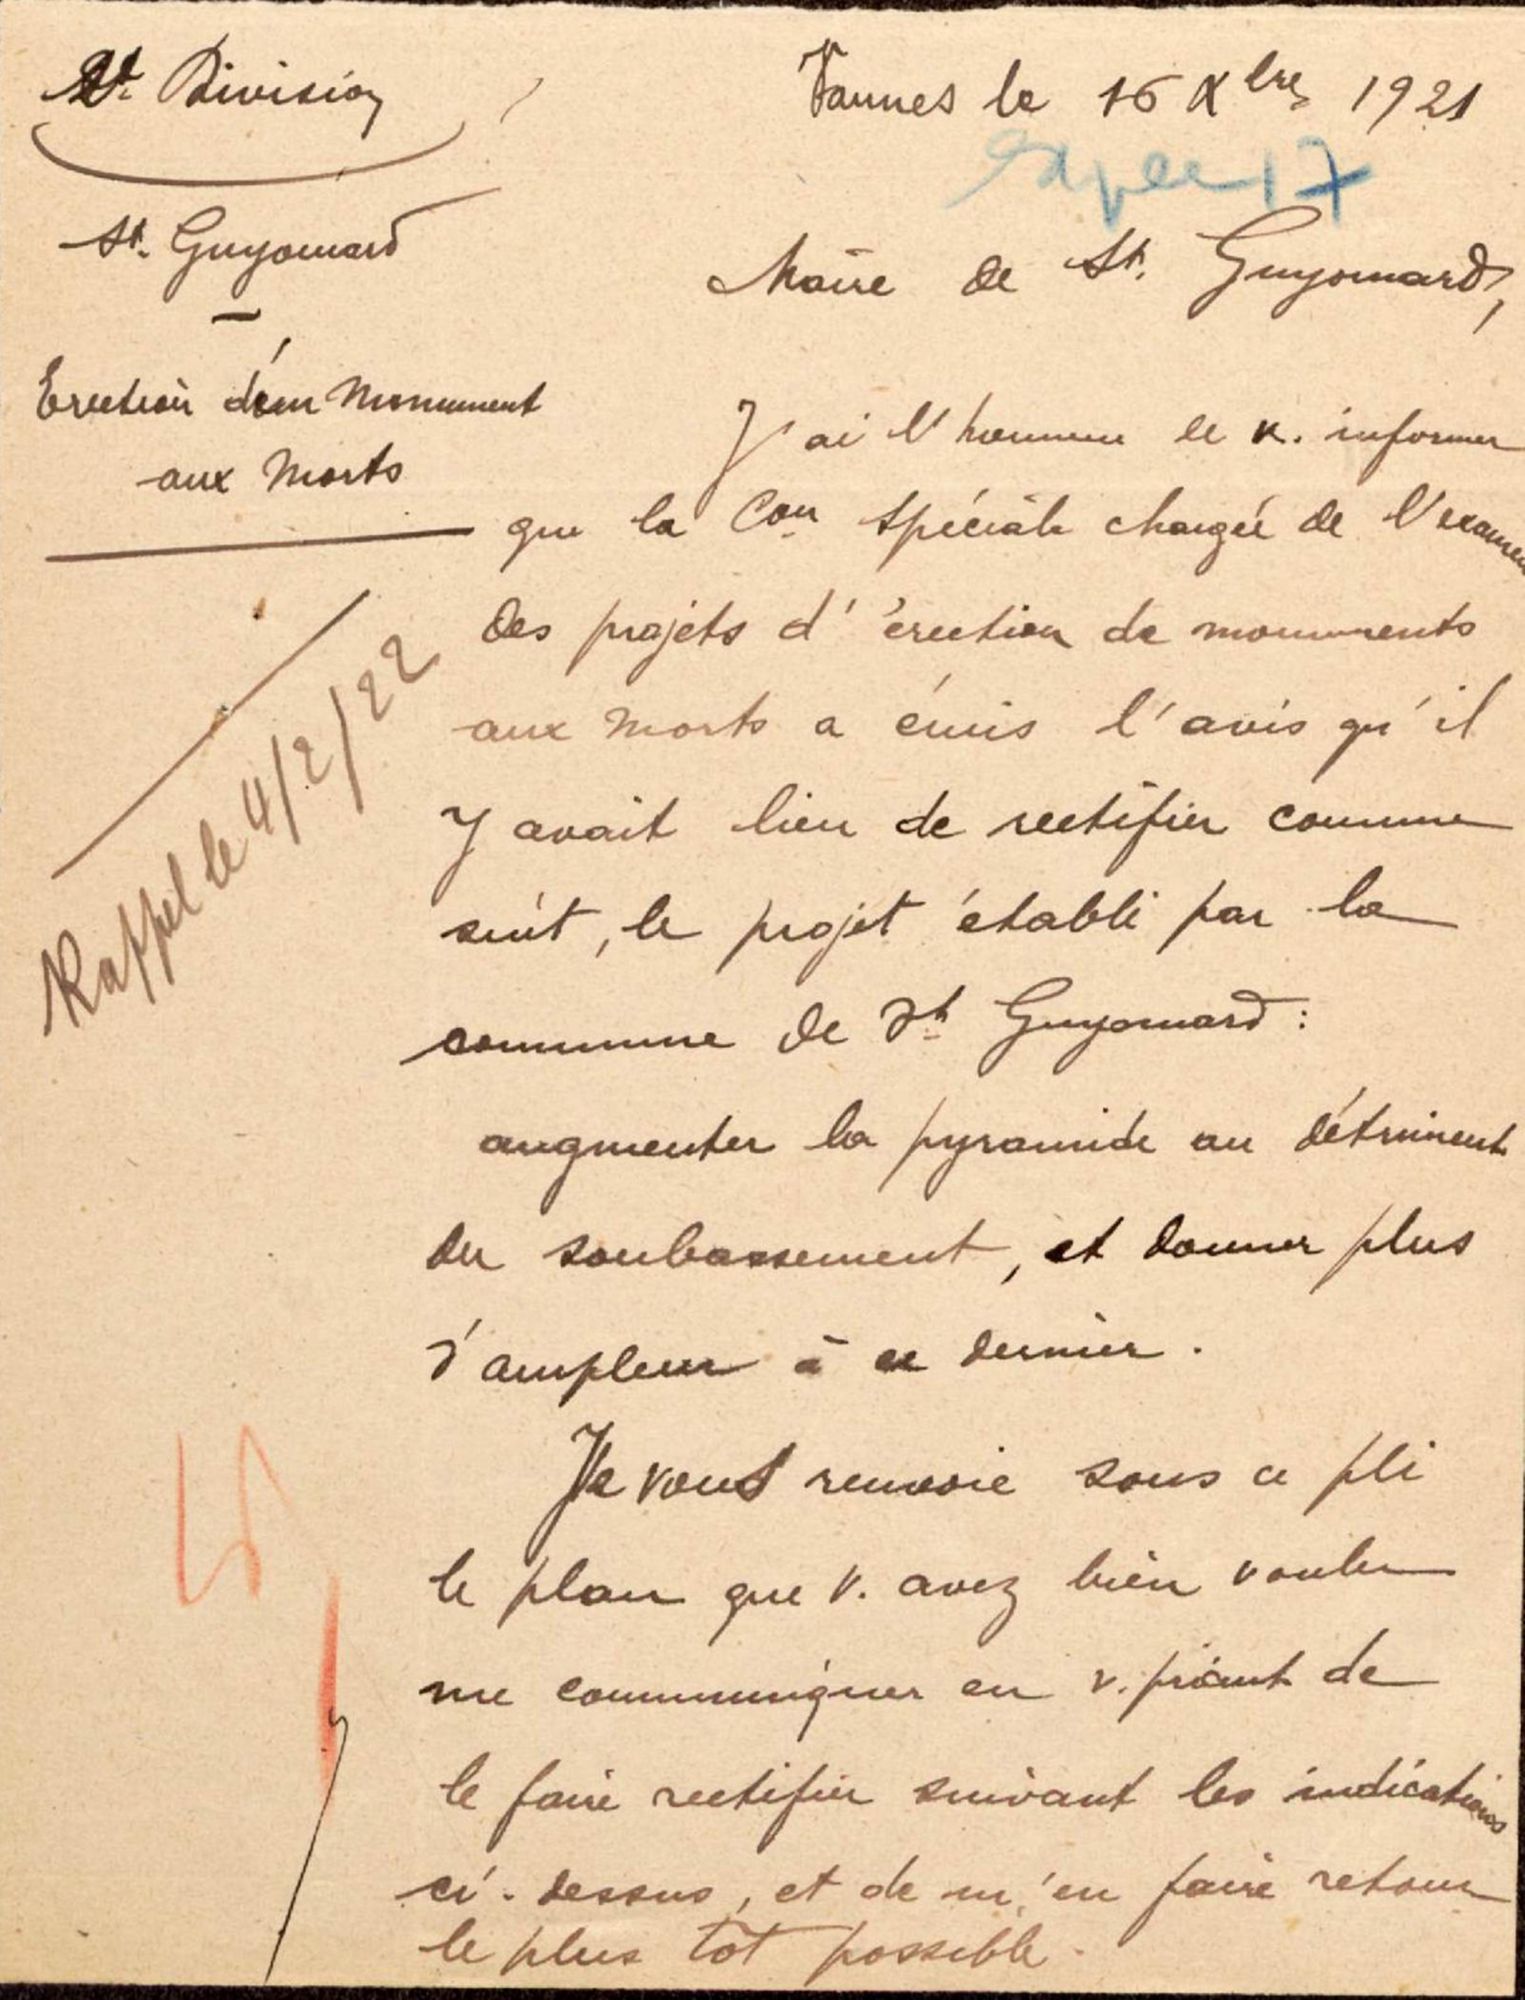 2e. Division
Vannes le 16 Xbre 1921
expée 17
St. Guyomard
Maire de St. Guyomard,
Erection d'un Monument
aux Morts
J'ai l'honneur de v. informer
que la Con spéciale chargée de l'examen
des projets d'érection de monuments
aux Morts a émis l'avis qu'il
y avait lieu de rectifier comme
suit, le projet établi par la
commune de St Guyomard :
augmenter la pyramide au détriment
du soubassement, et donner plus
d'ampleur à ce dernier.
Je vous renvoie sous ce pli
le plan que v. avez bien voulu
me communiquer en v. priant de
le faire rectifier suivant les indications
ci-dessus, et de m'en faire retour
le plus tôt possible.
Rappel le 4/2/22